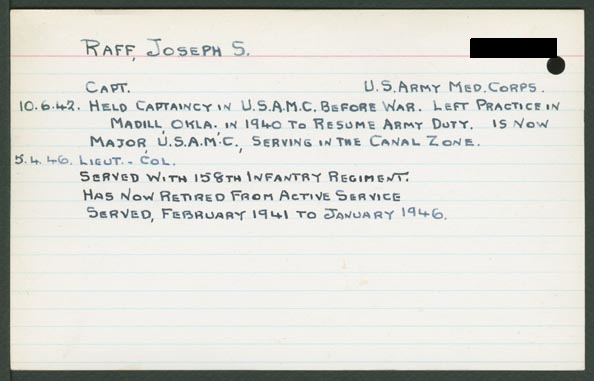 RAFF, JOSEPH S.
CAPT. U.S. ARMY MED. CORPS.
10.6.42. HELD CAPTAINCY IN U.S.A.M.C. BEFORE WAR. LEFT PRACTICE IN
MADILL, OKLA., IN 1940 TO RESUME ARMY DUTY. IS NOW
MAJOR, U.S.A.M.C., SERVING IN THE CANAL ZONE.
5.4.46. LIEUT.-COL.
SERVED WITH 158TH INFANTRY REGIMENT.
HAS NOW RETIRED FROM ACTIVE SERVICE
SERVED, FEBRUARY 1941 TO JANUARY 1946.